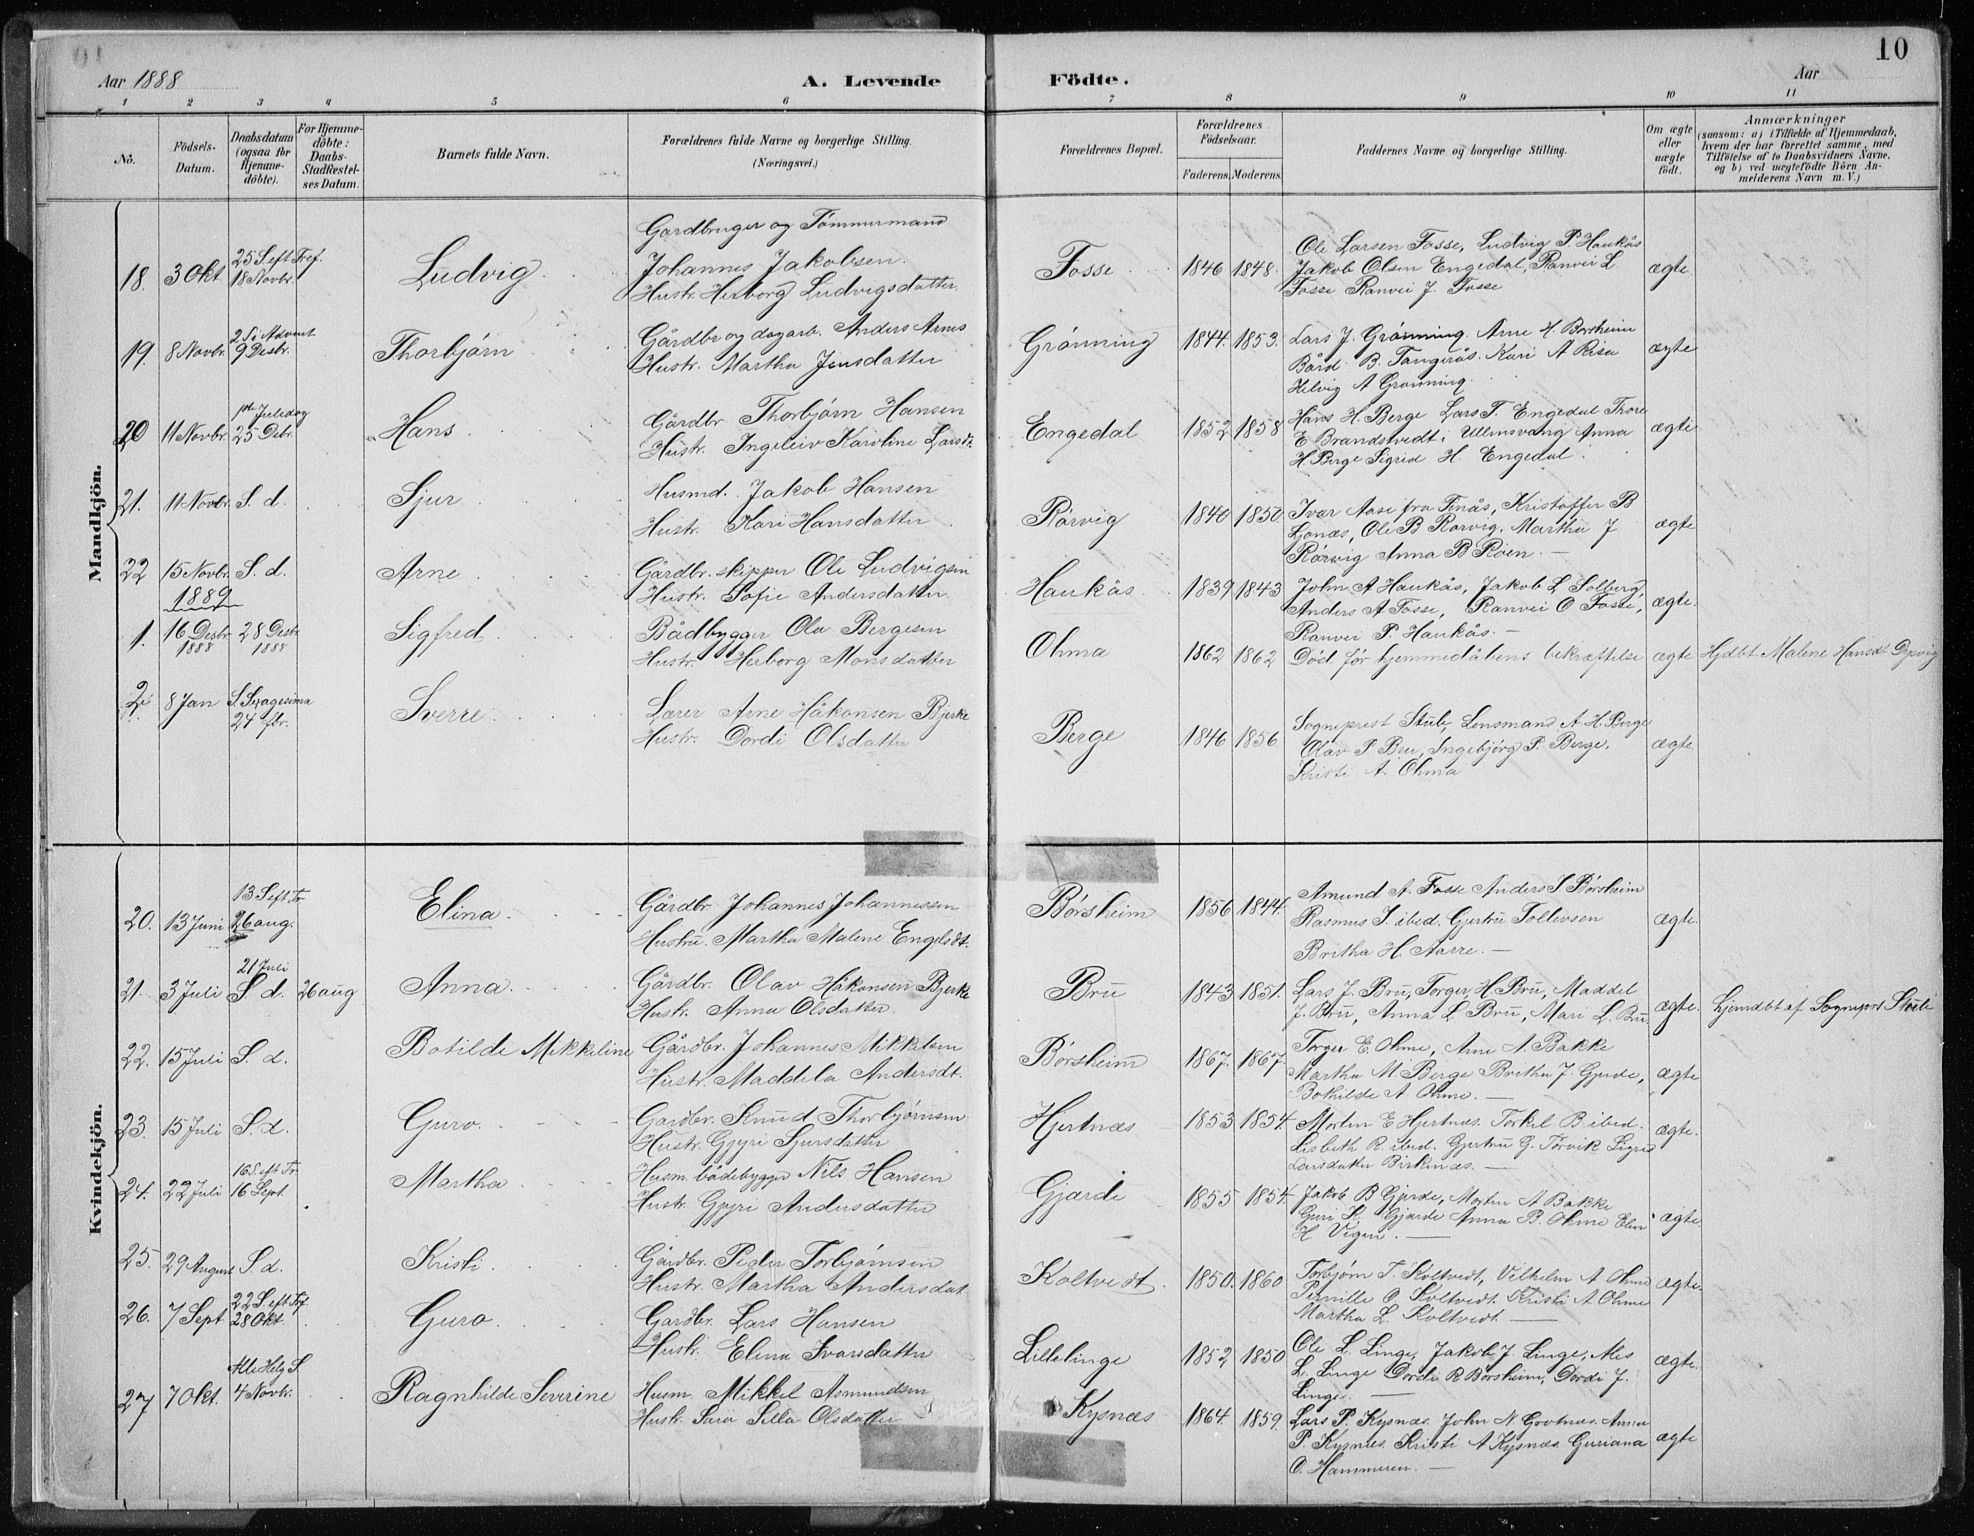 Aar 1888
A. Levende
Födte.
Aar
10
1 2 3 4 5 6 7 8 9 10 11
No.
Födsels-
Datum.
Daabsdatum
(ogsaa for
Hjemme-
döbte).
For Hjemme-
döbte:
Daabs-
Stadfæstel-
ses Datum.
Barnets fulde Navn.
Forældrenes fulde Navne og borgerlige Stilling.
(Næringsvei.)
Forældrenes Bopæl.
Forældrenes
Födselsaar.
Faderens. Moderens.
Faddernes Navne og borgerlige Stilling.
Om ægte
eller
uægte
födt.
Anmærkninger
(saasom: a) i Tilfælde af Hjemmedaab,
hvem der har forrettet samme, med
Tilföielse af to Daabsvidners Navne,
og b) ved uægtefödte Börn An-
melderens Navn m. V.)
Mandkjön.
18. 3 Okt 25 S eft Tref. 18 Novbr. Ludvig
Gårdbruger og Tømmermand
Johannes Jakobsen.
Hustr. Herborg Ludvigsdatter
Fosse 1846 1848.
Ole Larsen Fosse, Ludvig P. Haukås
Jakob Olsen Engedal, Ranvei L.
Fosse Ranvei J. Fosse
ægte.
19. 8 Novbr. 2 S i Advent 9 Desbr. Thorbjørn
Gårdbr og dagarb. Anders Arnes
Hustr. Martha Jensdatter
Grønning 1844. 1853.
Lars J. Grønning. Arne H. Børsheim
Bård B. Tangerås. Kari A Risa
Helvig A Grønning.
ægte
20 11 Novbr. Juledag 25 Debr. Hans
Gårdbr Thorbjørn Hansen
Hustr. Ingeleiv Karoline Larsdt.
Engedal 1852 1858
Hans H. Berge Lars T. Engedal Thore
E Brandstvedt i Ullensvang Anna
H. Berge Sigrid H. Engedal.
ægte
21. 11 Novbr. S. d. Sjur
Husmd. Jakob Hansen
Hustr. Kari Hansdatter
Rørvig 1840 1850
Ivar Aase fra Finås, Kristoffer B
Ljonæs, Ole B Rørvig, Martha J
Rørvig Anna B Røen. —
ægte
22 15 Novbr. S. d. Arne
Gårdbr. skipper Ole Ludvigsen
Hustr. Sofie Andersdatter
Haukås 1839 1843
John A Haukås, Jakob L Solberg,
Anders A Fosse, Ranvei O Fosse,
Ranvei P. Haukås. —
ægte.
1889
1. 16 Desbr. 1888 28 Desbr. 1888 Sigfred
Bådbygger Ola Bergesen
Hustr. Herborg Monsdatter
Ohma 1862 1862
Død før hjemmedåbens bekræftelse
ægte
Hjdbt. Malene Hansdt
2. 8 Jan S. Sexagesima 24 fbr. Sverre
Lærer Arne Håkonsen Bjerke
Hustr. Dordi Olsdatter
Berge 1846 1856
Sogneprest Stub, Lensmand A H. Berge
Olav P Bru, Ingebjørg P. Berge,
Kristi A. Ohma
ægte.
Kvindekjön.
20. 13 Juni 13 S eft Tr. 26 aug. Elina
Gårdbr Johannes Johannessen
Hustru. Martha Malene Engelsdt.
Børsheim 1856 1844.
Amund A. Fosse Anders S Børsheim
Rasmus J. ibed. Gjertru Tollevsen
Britha H. Aarre. —
ægte.
21. 3 Juli 21 Juli S d. 26 aug Anna
Gårdbr. Olav Håkonsen Bjerke
Hustr. Anna Olsdatter.
Bru 1843 1851.
Lars J. Bru, Torger H. Bru, Maddel
J. Bru, Anna L Bru, Mari L. Bru.
ægte.
hjemdbt af Sogneprst Stub
22. 15 Juli S. d. Botilde Mikkeline
Gårdbr. Johannes Mikkelsen
Hustr. Maddela Andersdt.
Børsheim 1867. 1867.
Torger E. Ohma, Arne A. Bakke
Martha M Berge Britha J. Gjerde,
Bothilde A Ohma. —
ægte
23. 15 Juli S. d. Guro
Gårdbr. Knud Thorbjørnsen
Hustr. Gjyri Sjursdatter
Hjertnæs 1853 1854.
Morten E Hjertnæs. Torkel B ibed.
Lisbeth R. ibed. Gjertru G. Tørvik Sigri
Larsdatter Birkenæs. —
ægte.
24. 22 Juli 16 S eft Tr 16 Sept. Martha
Husm. bådebygger Nils Hansen
Hustr. Gjyri Andersdatter
Gjærde 1855 1854.
Jakob B Gjerde, Morten A Bakke
Guri K. Gjærde Anna B. Ohma Elen
H Vigen. —
ægte.
25. 29 August S. d. Kristi
Gårdbr. Peder Torbjørnsen
Hustr. Martha Andersdat
Koltvedt. 1850. 1860
Torbjørn T. Koltvedt, Vilhelm A Ohma
Pernille O. Koltvedt. Kristi A Ohma
Martha L. Koltvedt. —
ægte.
26. 7 Sept 22 S. eft Tref. 28 Okt. Guro
Gårdbr. Lars Hansen
Hustr. Elena Ivarsdatter
Lillelinge 1852 1850
Ole L. Linge, Jakob J. Linge, Nils
L. Linge Dordi R Børsheim, Dordi J.
Linge. —
ægte.
27 7 Okt. Alle Helg S. 4 Novbr. Ragnhilde Severine
Husm. Mikkel Asmundsen
Hustr. Sara Silla Olsdatter
Kysnæs 1864. 1859.
Lars P. Kysnæs. John N Grotnæs. Anna
P. Kysnæs. Kristi A Kysnæs. Guriana
O. Hammeren. —
ægte